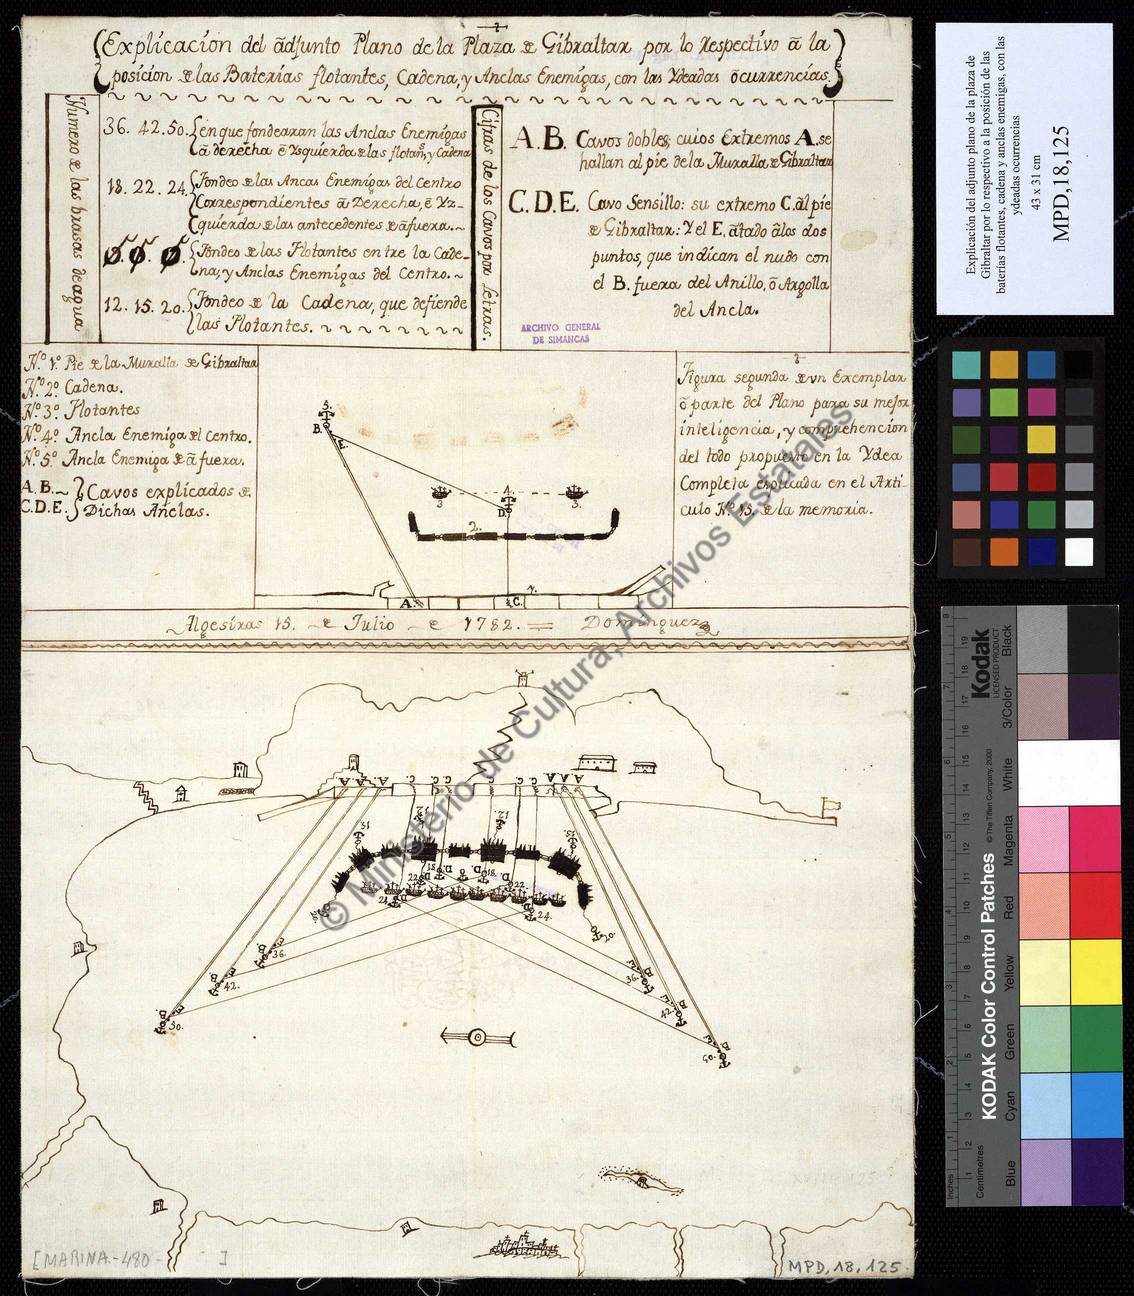 Explicacion del adjunto Plano de la Plaza de Gibraltar por lo Respectivo â la
posicion de las Baterias flotantes, Cadena, y Anclas Enemigas, con las Ydeadas ôcurrencias.
Numero de las brasas de agua
36. 42. 50. en que fondearan las Anclas Enemigas
â derecha ê Ysquierda de las flotans, y Cadena
18. 22. 24. Fondeo de las Ancas Enemigas del Centro
Correspondientes â Derecha, ê Yz-
quierda de las antecedentes de âfuera.
Fondeo de las Flotantes entre la Cade-
na, y Anclas Enemigas del Centro.
12. 15. 20. Fondeo de la Cadena, que defiende
las Flotantes.
Cifras de los Cavos por Letras.
A.B. Cavos dobles, cuios Extremos A. se
hallan al pie de la Muralla de Gibraltar
C.D.E. Cavo Sensillo: su extremo C. al pie
de Gibraltar: Y el E, âtado âlos dos
puntos, que indican el nudo con
el B. fuera del Anillo, ô Argolla
del Ancla.
ARCHIVO GENERAL
DE SIMANCAS
N.º 1.º Pie de la Muralla de Gibraltar
N.º 2.º Cadena.
N.º 3.º Flotantes
N.º 4.º Ancla Enemiga del Centro.
N.º 5.º Ancla Enemiga de âfuera.
A.B.
C.D.E.
Cavos explicados de
Dichas Anclas.
5.
B.
E.
3
4.
D.
3.
2.
1.
A.
C.
Figura segunda de vn Exemplar
ô parte del Plano para su mejor
inteligencia, y comprehencion
del todo propuesto en la Ydea
Completa esplicada en el Arti-
culo N.º 15. de la memoria.
Algesiras 15. de Julio de 1782. = Dominguez
A A A. C. C. C. C. C. A A A
12. 12.
15. 15.
18. D. D. 18.
22. 22.
24. D D 24.
20.
B E 36. E 36. B
B E 42. E 42. B
B E 50. E 50. B
[MARINA.-480- ]
MPD, 18, 125
© Ministerio de Cultura, Archivos Estatales
Explicación del adjunto plano de la plaza de
Gibraltar por lo respectivo a la posición de las
baterías flotantes, cadena y anclas enemigas, con las
ydeadas ocurrencias
43 x 31 cm
MPD,18,125
Kodak
LICENSED PRODUCT
KODAK Color Control Patches
© The Tiffen Company, 2000
Blue Cyan Green Yellow Red Magenta White 3/Color Black
Inches 1 2 3 4 5 6 7 8
Centimetres 1 2 3 4 5 6 7 8 9 10 11 12 13 14 15 16 17 18 19